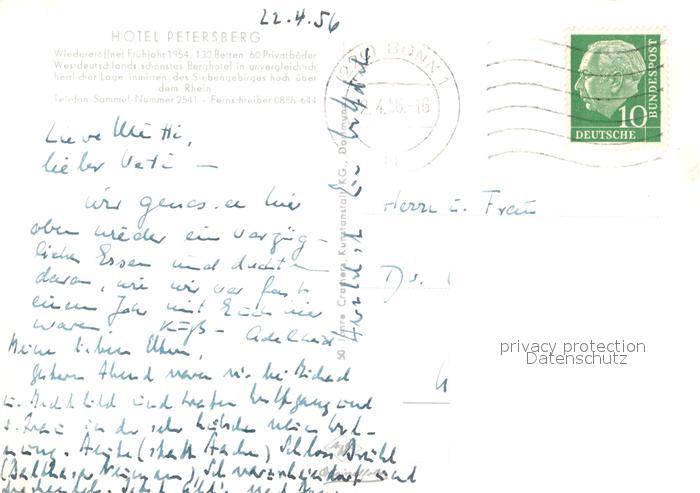 22.4.56
HOTEL PETERSBERG
Wiedereröffnet Frühjahr 1954, 130 Betten, 60 Privatbäder
Westdeutschlands schönstes Berghotel in unvergleichlich
herrlicher Lage inmitten des Siebengebirges hoch über
dem Rhein
Telefon-Sammel-Nummer 2541 - Fernschreiber 0886-644
Liebe Mutti,
lieber Vati —
wir genossen hier
oben wieder ein vorzüg-
liches Essen und dachten
daran, wie wir vor fast
einem Jahr mit Euch hier
waren. Kuß - Adelheid
Meine lieben Eltern,
gestern Abend waren wir bei Michael
u. Mechthild und trafen Wolfgang und
s. Frau in der sehr hübschen kleinen Woh-
nung. Heute (statt Aachen) Schloss Brühl
(Balthasar Neumann), Schwarzrheindorf und
50 Jahre Cramers Kunstanstalt KG., Dortmund
BONN 1
4.56.-16
10
DEUTSCHE
BUNDESPOST
Herrn u. Frau
Dr.
privacy protection
Datenschutz